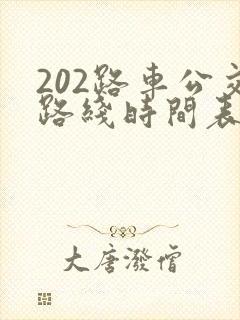 202路車公交
路綫時間表
大唐潑僧